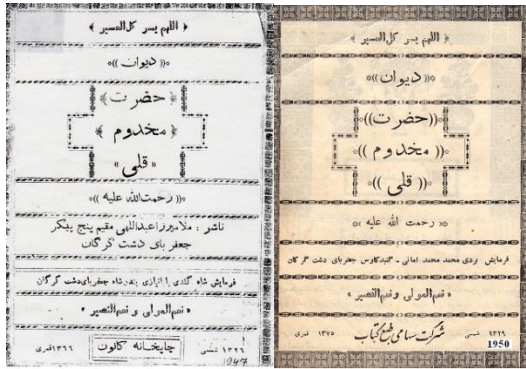 ﴿ اللهم یسر کل العسیر ﴾
«(( دیوان ))»
﴿ حضرت ﴾
﴿ مخدوم ﴾
« قلی »
«(( رحمت‌الله علیه ))»
ناشر : ملامیرزا عبداللهی مقیم پنج پیکر
جعفربای دشت گرگان
فرمایش شاه گلدی بندرشاه جعفربای دشت گرگان
« نعم المولی و نعم النصیر »
۱۳۲۶ شمسی
چاپخانه کانون
۱۳۶۶ قمری
1947
﴿ اللهم یسر کل العسیر ﴾
«(( دیوان ))»
((حضرت))
(( مخدوم ))
(( قلی ))
«( رحمت الله علیه )»
فرمایش بردی محمد محمد امانی ـ گنبد کاوس جعفربای دشت گرگان
« نعم المولی و نعم النصیر »
۱۳۲۹ شمسی
شرکت سهامی طبع کتاب
۱۳۷۵ قمری
1950